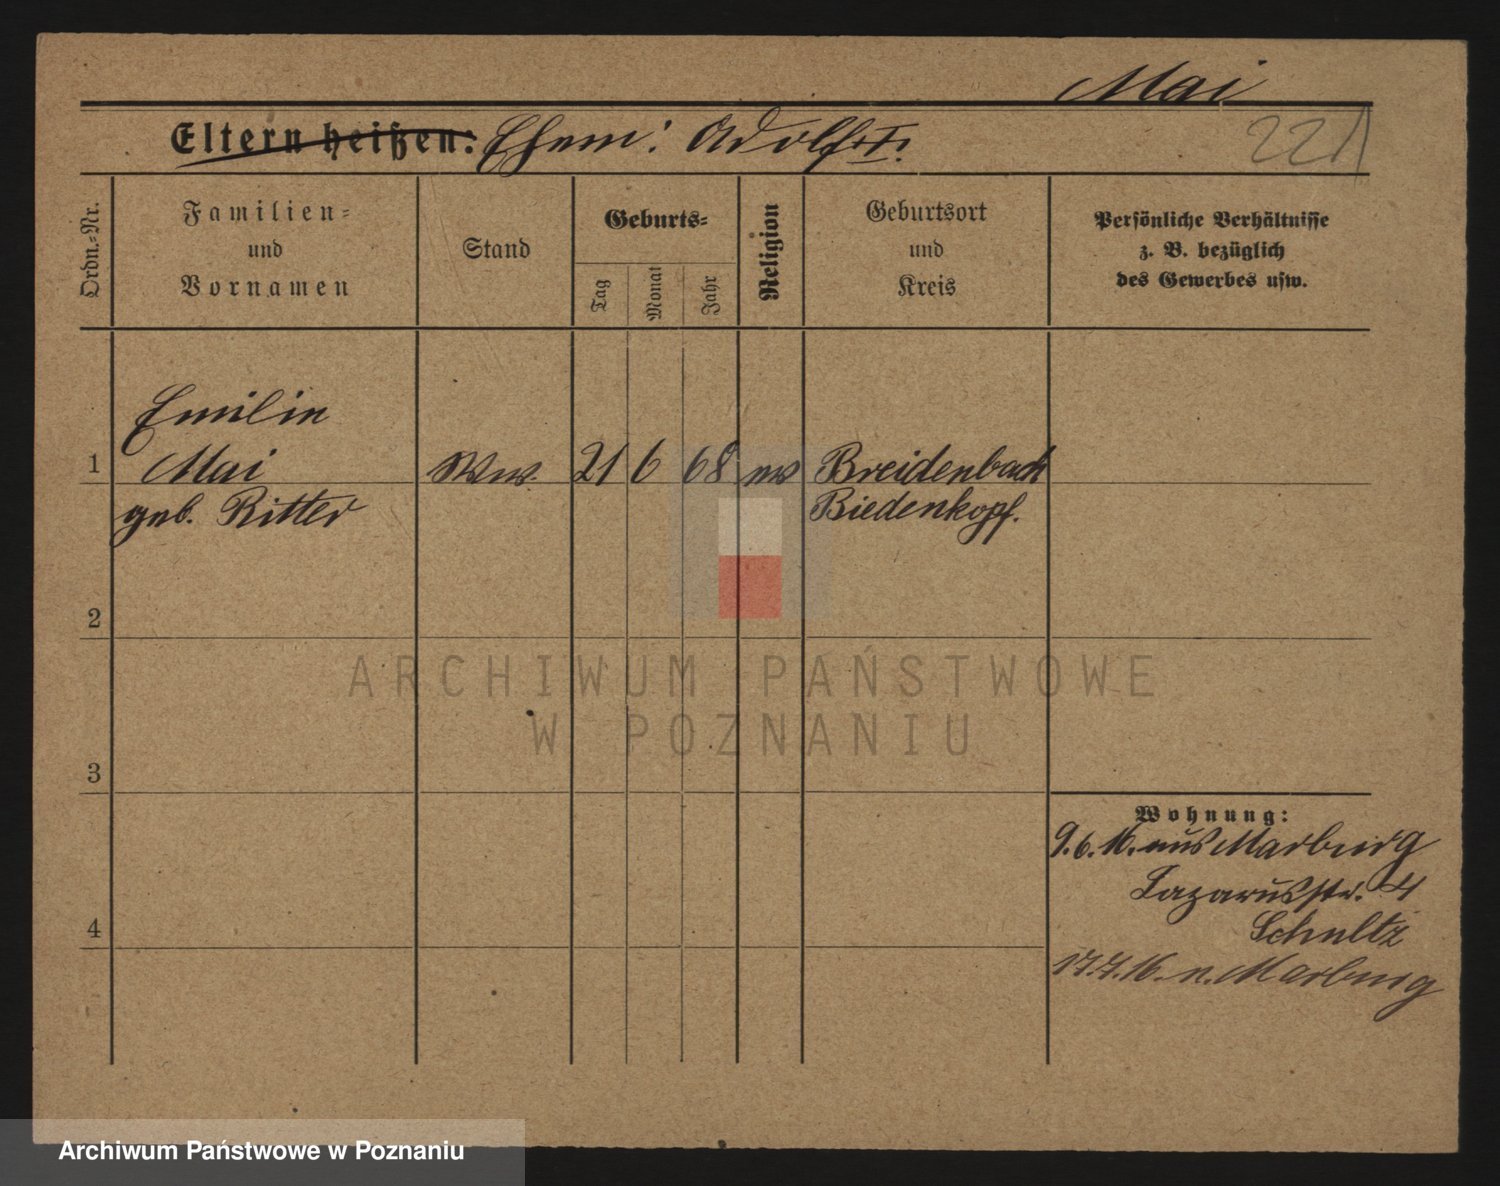 Mai
Eltern heißen: Ehem: Adolf †.
221
Ordn.-Nr.
Familien-
und
Vornamen
Stand
Geburts-
Tag
Monat
Jahr
Religion
Geburtsort
und
Kreis
Persönliche Verhältnisse
z. B. bezüglich
des Gewerbes usw.
Emilie
1 Mai Ww. 21 6 68 ev Breidenbach
geb. Ritter Biedenkopf.
2
3
4
Wohnung:
9.6.16. aus Marburg
Lazarusstr. 4
Schultz
17.7.16. n. Marburg
ARCHIWUM PAŃSTWOWE
W POZNANIU
Archiwum Państwowe w Poznaniu